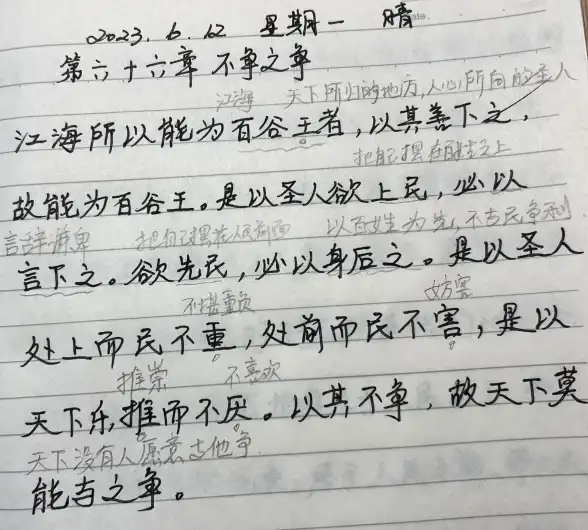 2023.6.12 星期一 晴
第六十六章 不争之争
江海 天下所归的地方,人心所向的圣人
江海所以能为百谷王者,以其善下之,
把自己摆在百姓之上
故能为百谷王。是以圣人欲上民,必以
言辞谦卑 把自己摆在人民前面 以百姓为先,不与民争利
言下之。欲先民,必以身后之。是以圣人
不堪重负 妨害
处上而民不重,处前而民不害,是以
推崇 不喜欢
天下乐推而不厌。以其不争,故天下莫
天下没有人愿意与他争
能与之争。